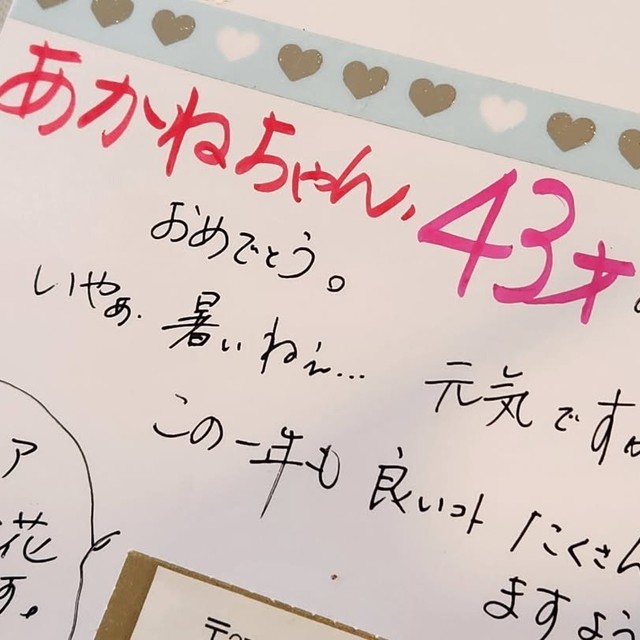 あかねちゃん、43才。
おめでとう。
いやぁ、暑いねぇ…
元気ですか
この一年も良いコトたくさん
ますよう
ア
花
す。
〒